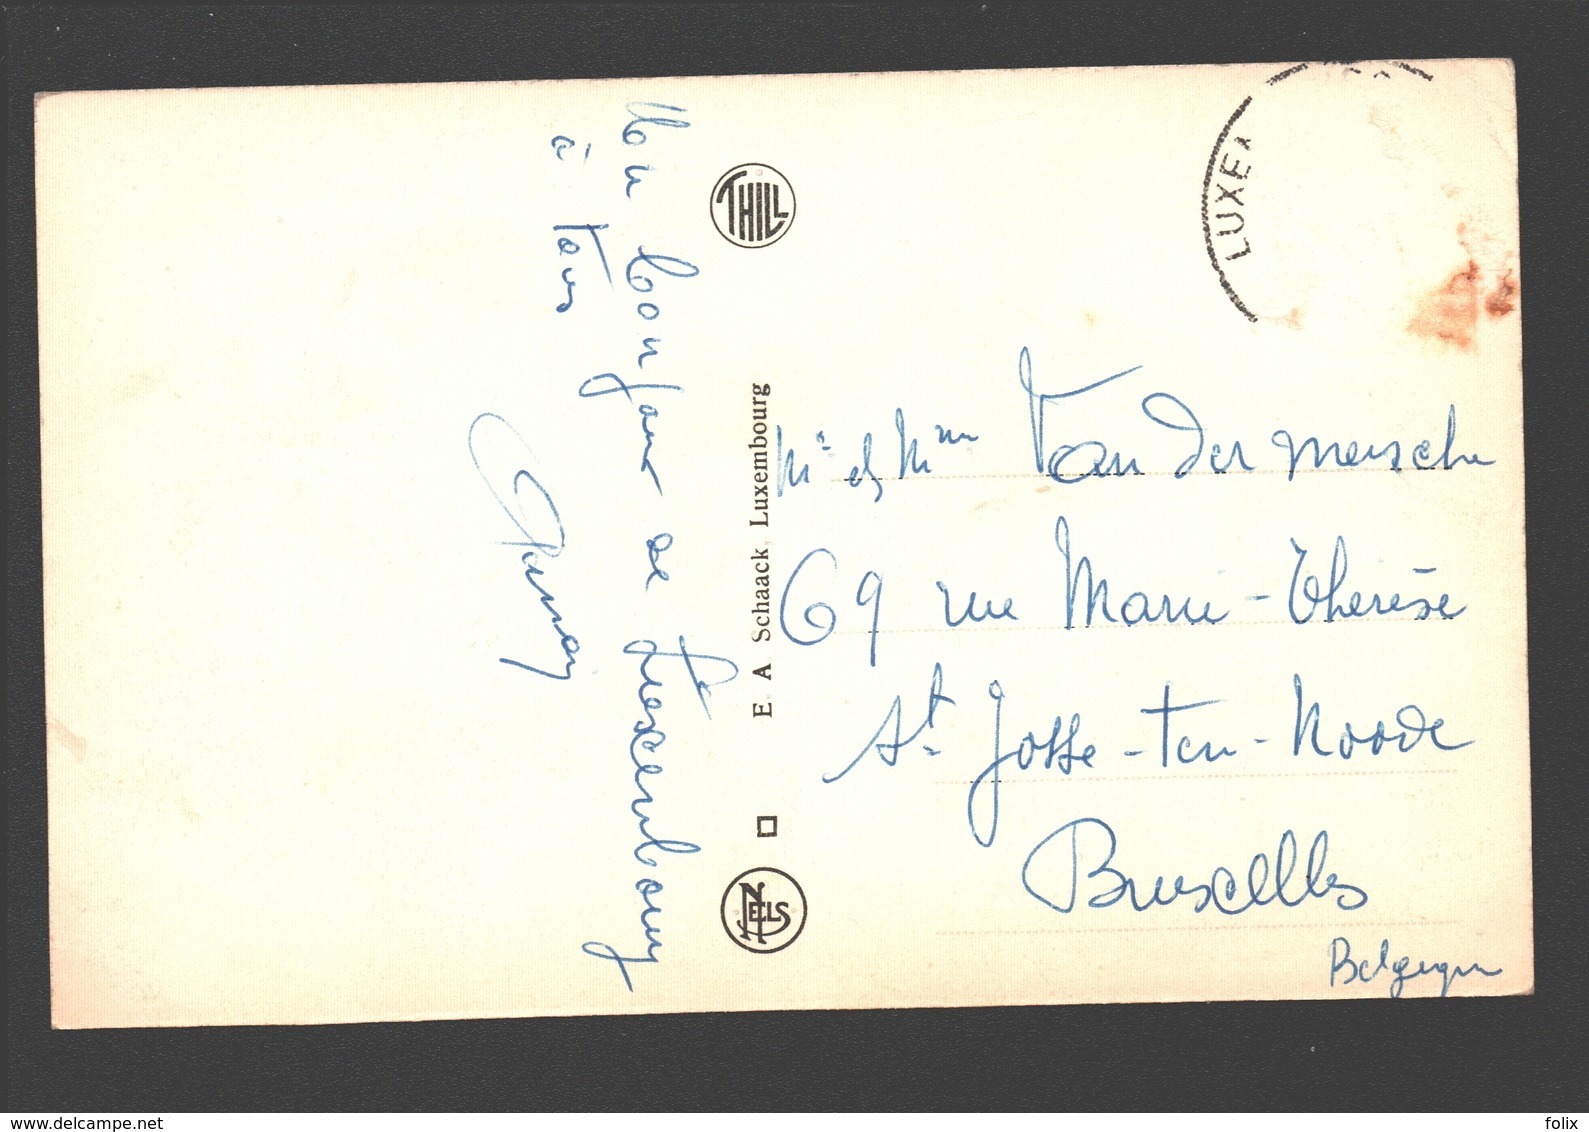 Un bonjour de Luxembourg
à tous
THILL
E. A. Schaack, Luxembourg
NELS
LUXEM
Mr et Mme Van der meersche
69 rue Marie-Thérèse
St Josse-ten-Noode
Bruxelles
Belgique
www.delcampe.net
folix